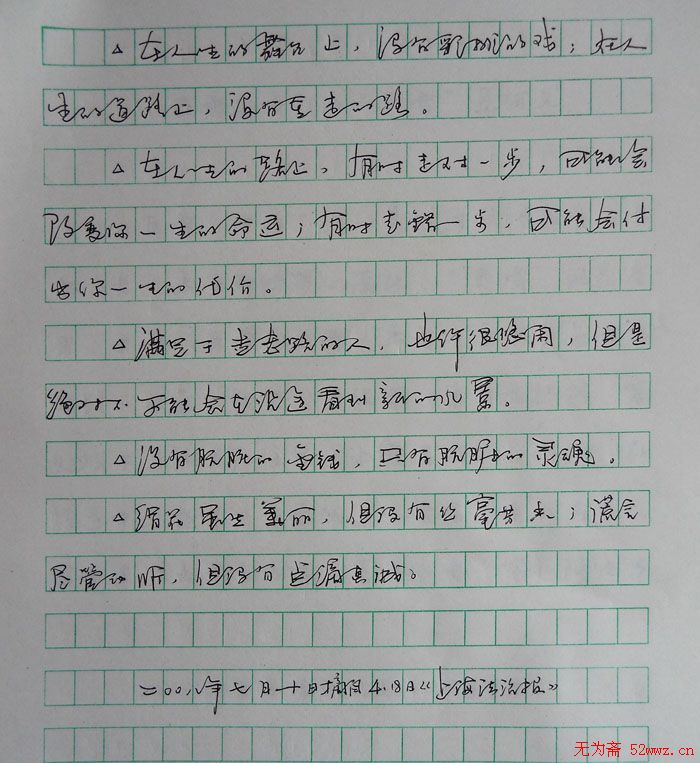 △在人生的舞台上，没有彩排的戏；在人
生的道路上，没有重走的路。
△在人生的路上，有时走对一步，可能会
改变你一生的命运；有时走错一步，可能会付
出你一生的代价。
△满足于走老路的人，也许很悠闲，但是
绝对不可能会在沿途看到新的风景。
△没有肮脏的金钱，只有肮脏的灵魂。
△绢花虽生美丽，但没有丝毫芬；谎言
尽管动听，但没有点滴真诚。
二00年七月十日摘自4.18日《上海法治报》
无为斋 52wwz.cn